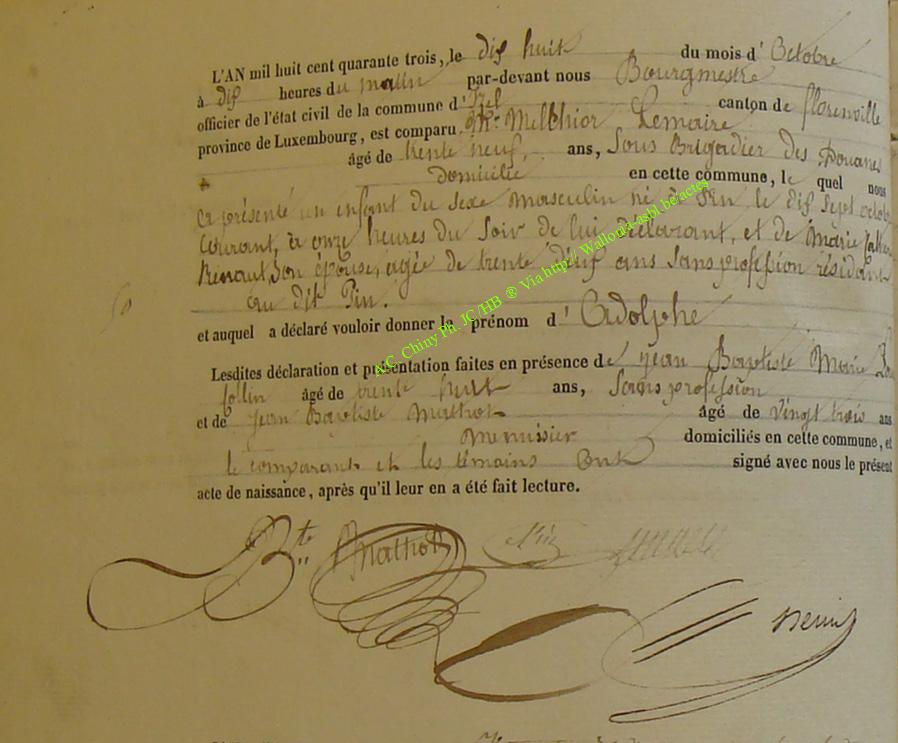 L'AN mil huit cent quarante trois, le dix huit du mois d' Octobre
à dix heures du matin par-devant nous Bourgmestre
officier de l'état civil de la commune d' Izel canton de florenville
province de Luxembourg, est comparu Mr Melchior Lemaire
âgé de trente neuf ans, Sous Brigadier des Douanes
domicilié en cette commune, le quel nous
a présenté un enfant du sexe masculin né à Pin le dix sept octobre
courant, à onze heures du soir de lui déclarant, et de Marie
son épouse, agée de trente ans sans profession résidant
au dit Pin.
et auquel a déclaré vouloir donner le prénom d' Adolphe
Lesdites déclaration et présentation faites en présence de jean Baptiste Marie
Collin âgé de trente huit ans, Sans profession
et de jean Baptiste Mathot âgé de vingt trois ans
Menuisier domiciliés en cette commune, et
le comparant et les témoins ont signé avec nous le présent
acte de naissance, après qu'il leur en a été fait lecture.
Bte Mathot
A.C. Chiny Ph. JC/HB ® Via http:// Wallonia-asbl.be/actes